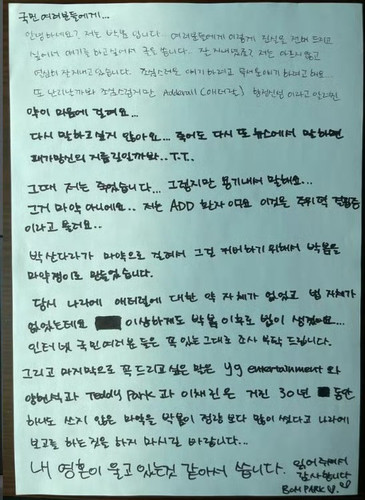 국민 여러분들에게...
안녕하세요? 저는 박봄 입니다... 여러분들에게 이렇게 진심을 전해 드리고
싶어서 얘기를 하고싶어서 글을 씁니다. 잘 지내셨죠? 저는 아프지않고
열심히 잘지내고있습니다. 조심스럽게 얘기 하려고
또 난리난가봐 조심스럽지만 Adderall (애더럴) 향정신성 이라고 알려진
약이 마음에 걸려요...
다시 말하고싶지 않아요... 죽어도 다시 또 뉴스에서 말하면
패가망신의 지름길일까봐.. T.T.
그때 저는 죽었습니다... 그렇지만 용기내서 말해요...
그거 마약 아니에요.. 저는 ADD 환자 이다요 이것은 주위력 결핍증
이라고 불러요..
박산다라가 마약으로 걸려서 그걸 커버하기위해서 박봄을
마약쟁이로 만들었습니다.
당시 나라에 애더럴에 대한 약 자체가 없었고 법 자체가
없었는데요 이상하게도 박봄 이후로 법이 생겼어요...
인터넷 국민 여러분 들은 꼭 있는그대로 조사 부탁 드립니다.
그리고 마지막으로 꼭 드리고 싶은 말은 yg entertainment 와
양현석 과 Teddy Park 과 이채린 은 거진 30년 동안
하나도 쓰지 않은 마약을 박봄이 정량 보다 많이 썼다고 나라에
보고를 하는것을 하지 마시길 바랍니다...
내 영혼이 울고 있는것 같아서 씁니다. 읽어주셔서
감사합니다
BOM PARK